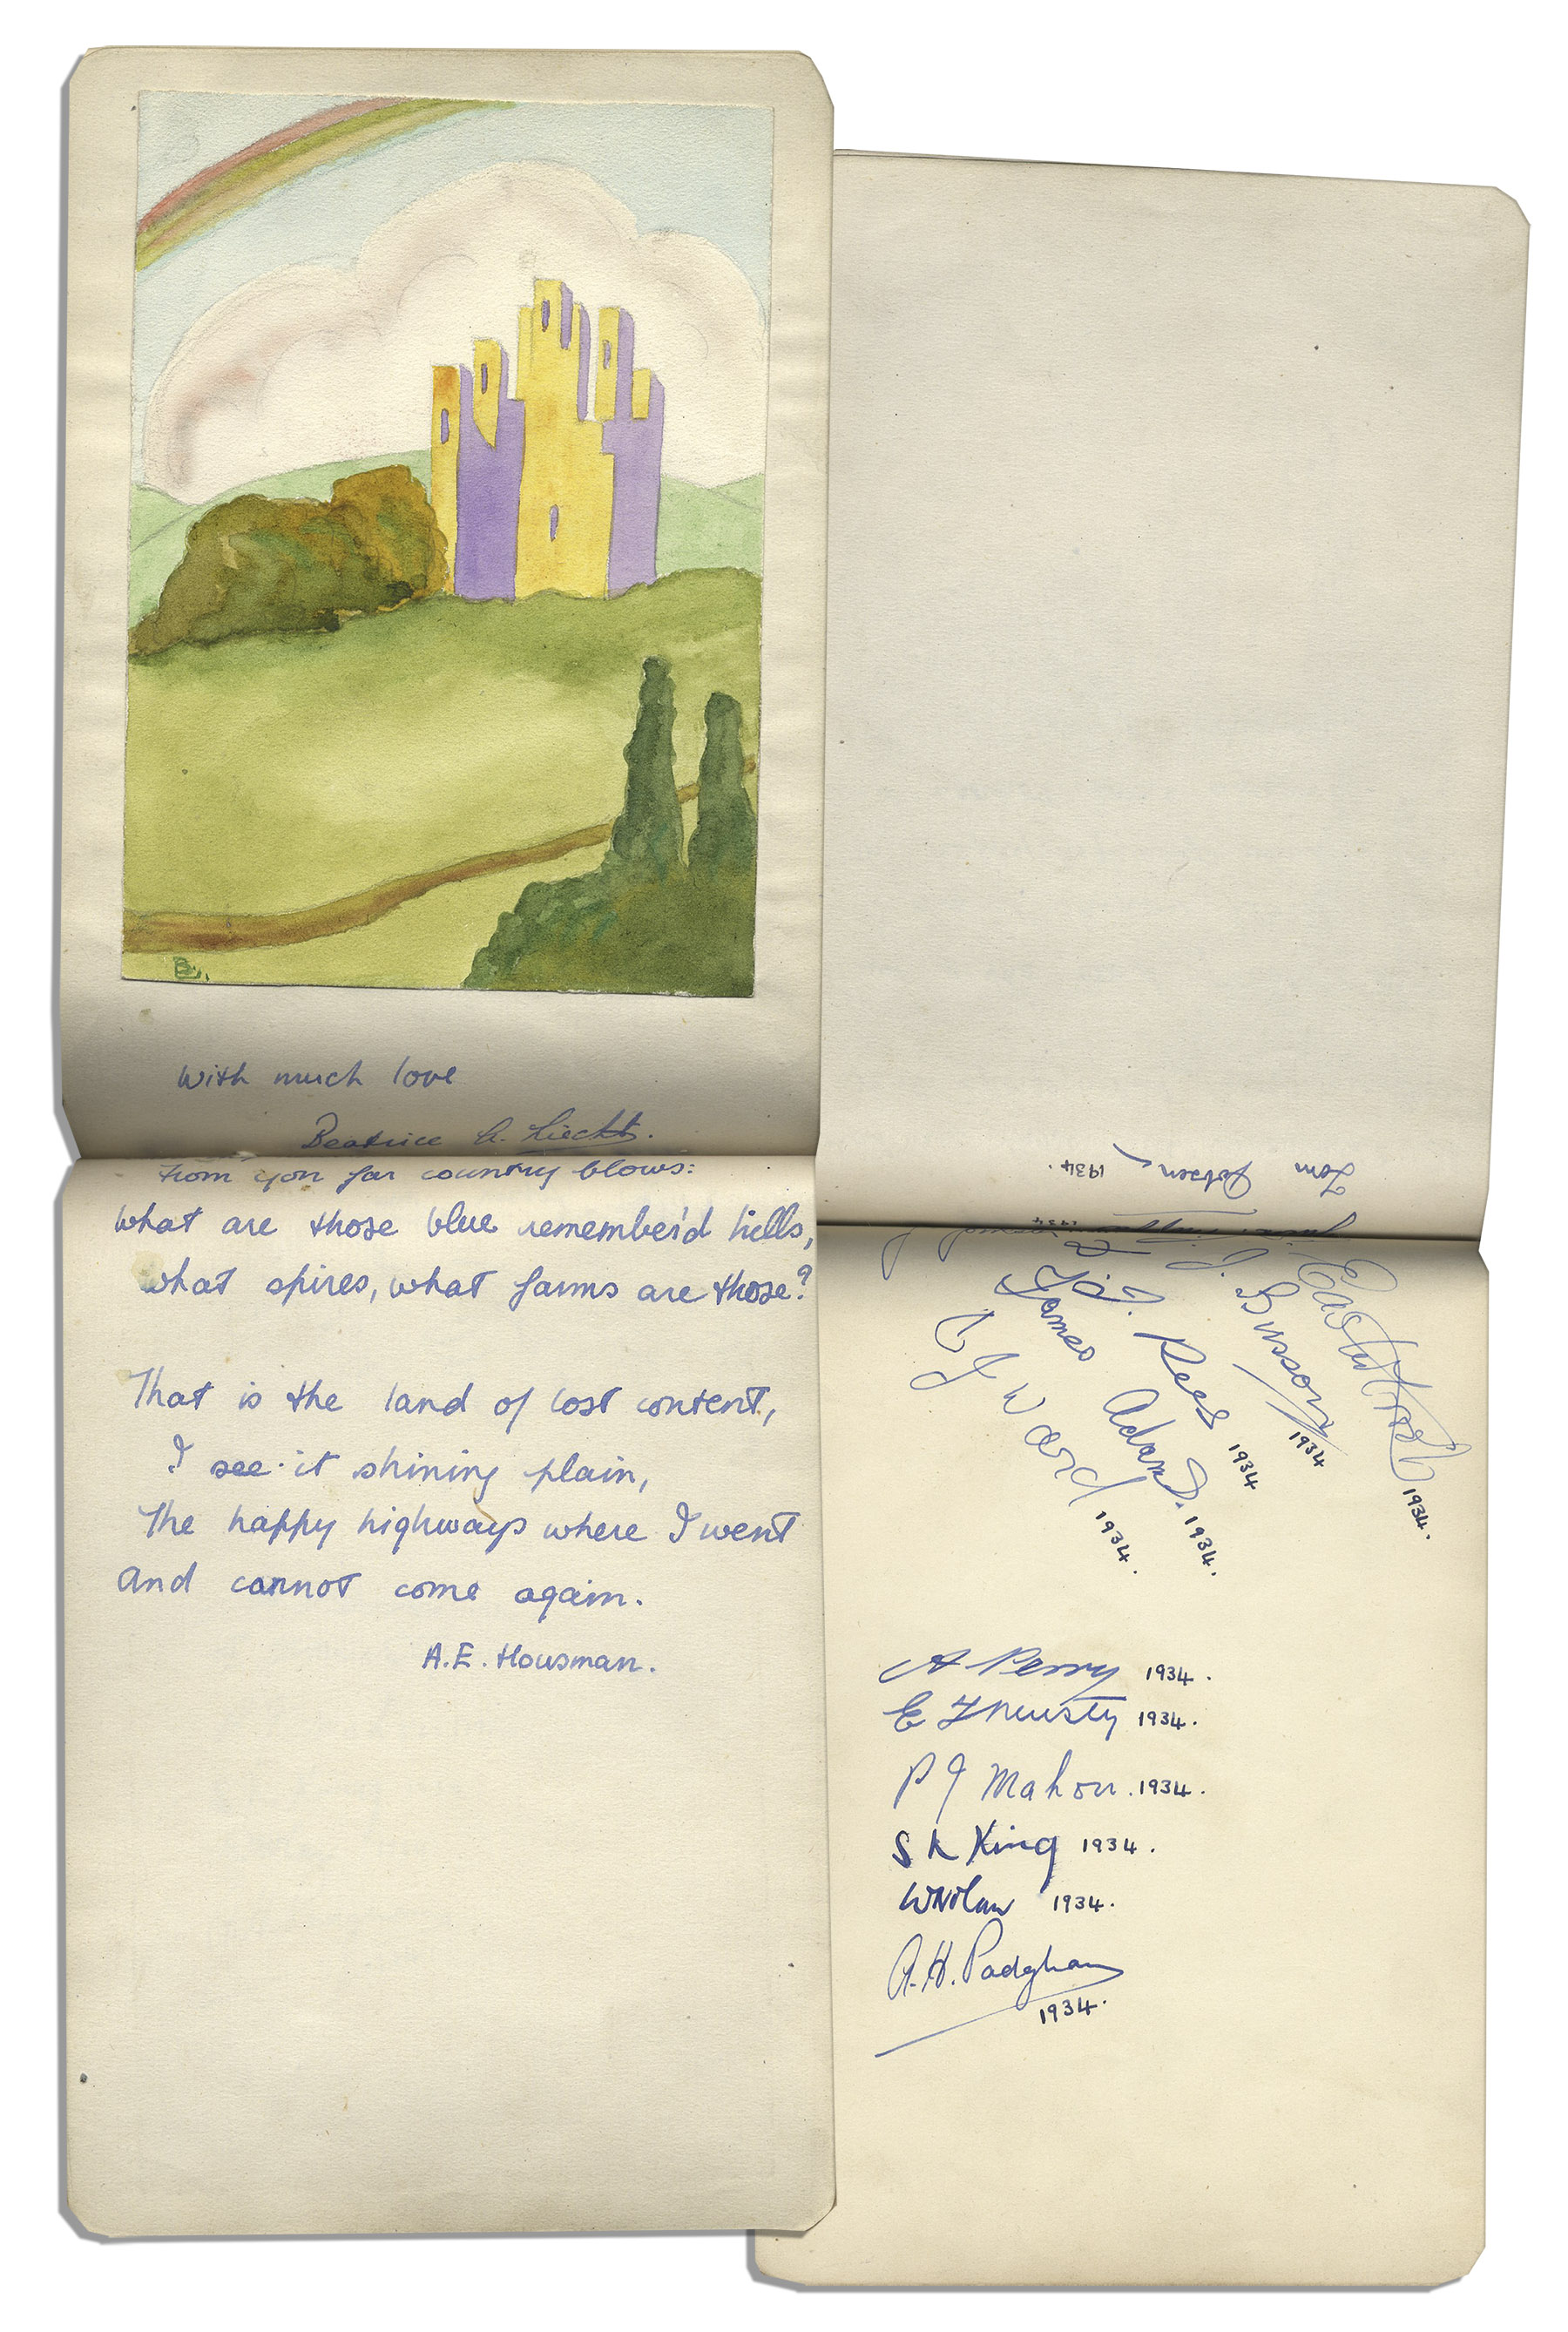 With much love
Beatrice A. Liecht.
From yon far country blows:
What are those blue remember'd hills,
What spires, what farms are those?
That is the land of lost content,
I see it shining plain,
The happy highways where I went
And cannot come again.
A.E. Housman.
Tom 1934.
1934
Easterbrook 1934.
J. Busson 1934
J. Rees 1934
James Adams. 1934.
J Ward 1934.
A Perry 1934.
E 1934.
P J Mahon. 1934.
S K King 1934.
W Nolan 1934.
A.H. Padgham
1934.